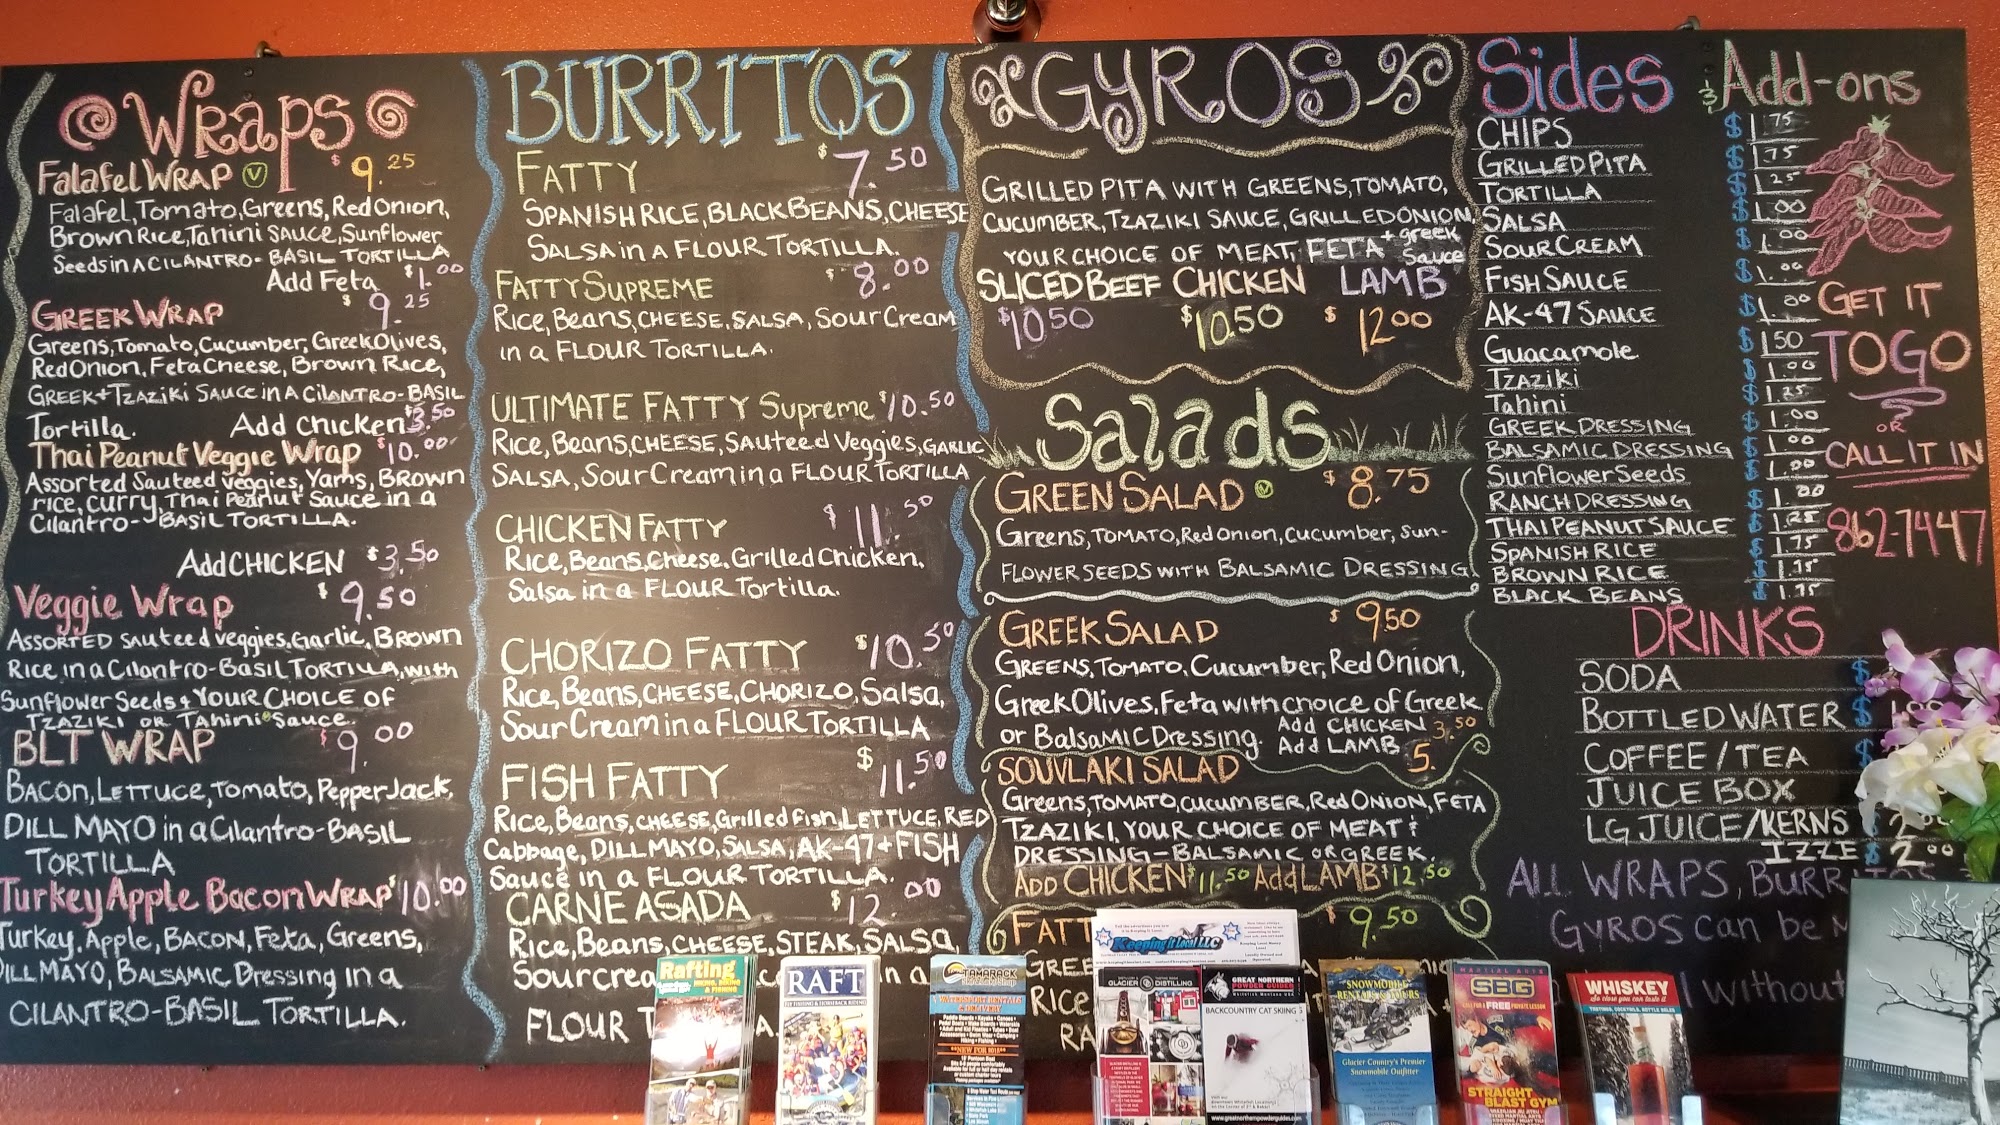 Wraps
Falafel Wrap V $9.25
Falafel, Tomato, Greens, Red Onion,
Brown Rice, Tahini Sauce, Sunflower
Seeds in a CILANTRO-BASIL TORTILLA
Add Feta $1.00
Greek Wrap $9.25
Greens, Tomato, Cucumber, Greek Olives,
Red Onion, Feta Cheese, Brown Rice,
Greek + Tzaziki Sauce in a Cilantro-Basil
Tortilla. Add Chicken $3.50
Thai Peanut Veggie Wrap $10.00
Assorted Sauteed Veggies, Yams, Brown
rice, curry, Thai Peanut Sauce in a
Cilantro-Basil Tortilla.
Add CHICKEN $3.50
Veggie Wrap $9.50
Assorted sauteed veggies, Garlic, Brown
Rice in a Cilantro-Basil Tortilla, with
Sunflower Seeds + YOUR CHOICE OF
TZAZIKI OR Tahini V Sauce.
BLT WRAP $9.00
Bacon, Lettuce, Tomato, Pepper Jack,
DILL MAYO in a Cilantro-BASIL
TORTILLA
Turkey Apple Bacon Wrap $10.00
Turkey, Apple, BACON, Feta, Greens,
DILL MAYO, BALSAMIC Dressing in a
CILANTRO-BASIL TORTILLA.
BURRITOS
FATTY $7.50
SPANISH RICE, BLACK BEANS, CHEESE
SALSA in a FLOUR TORTILLA.
FATTY SUPREME $8.00
Rice, Beans, CHEESE, SALSA, Sour Cream
in a FLOUR TORTILLA.
ULTIMATE FATTY Supreme $10.50
Rice, Beans, CHEESE, Sauteed Veggies, GARLIC
SALSA, Sour Cream in a FLOUR TORTILLA
CHICKEN FATTY $11.50
Rice, Beans, Cheese, Grilled Chicken,
Salsa in a FLOUR Tortilla.
CHORIZO FATTY $10.50
Rice, Beans, CHEESE, CHORIZO, Salsa,
Sour Cream in a FLOUR TORTILLA
FISH FATTY $11.50
Rice, Beans, CHEESE, Grilled fish, LETTUCE, RED
Cabbage, DILL MAYO, SALSA, AK-47 + FISH
Sauce in a FLOUR TORTILLA.
CARNE ASADA $12.00
Rice, Beans, CHEESE, STEAK, SALSA,
Sour crea in a
FLOUR T A.
GYROS
GRILLED PITA WITH GREENS, TOMATO,
CUCUMBER, TZAZIKI SAUCE, GRILLED ONION
YOUR CHOICE OF MEAT, FETA + greek Sauce
SLICED BEEF CHICKEN LAMB
$10.50 $10.50 $12.00
Salads
GREEN SALAD V $8.75
Greens, TOMATO, Red Onion, Cucumber, Sun-
FLOWER SEEDS WITH BALSAMIC DRESSING
GREEK SALAD $9.50
GREENS, TOMATO, Cucumber, Red Onion,
Greek Olives, Feta with choice of Greek
or Balsamic Dressing. Add CHICKEN 3.50
Add LAMB 5.
SOUVLAKI SALAD
Greens, TOMATO, CUCUMBER, Red Onion, FETA
TZAZIKI, YOUR CHOICE OF MEAT &
DRESSING - BALSAMIC OR GREEK.
ADD CHICKEN $11.50 Add LAMB $12.50
FATT $9.50
GREE
Rice
RA
Sides & Add-ons
CHIPS $1.75
GRILLED PITA $1.75
TORTILLA $1.25
SALSA $1.00
SOUR CREAM $1.00
FISH SAUCE $1.00
AK-47 SAUCE $1.00
Guacamole $1.50
Tzaziki $1.00
Tahini $1.25
GREEK DRESSING $1.00
BALSAMIC DRESSING $1.00
Sunflower Seeds $1.00
RANCH DRESSING $1.00
THAI PEANUT SAUCE $1.25
SPANISH RICE $1.75
BROWN RICE $1.75
BLACK BEANS $1.75
GET IT
TOGO
?
OR
CALL IT IN
862-7447
DRINKS
SODA $
BOTTLED WATER $ 1.00
COFFEE/TEA $
JUICE BOX
LG JUICE/KERNS $2.00
IZZE $2.00
ALL WRAPS, BURRITOS
GYROS can be
without
Rafting
HIKING, BIKING & FISHING
RAFT
TAMARACK
Keeping it Local LLC
GLACIER DISTILLING
GREAT NORTHERN
POWDER GUIDES
BACKCOUNTRY CAT SKIING
www.greatnorthernpowderguides.com
SNOWMOBILE
RENTALS & TOURS
Glacier Country's Premier
Snowmobile Outfitter
MARTIAL ARTS
SBG
STRAIGHT
BLAST GYM
WHISKEY
So close you can taste it
TASTINGS, COCKTAILS, BOTTLE SALES